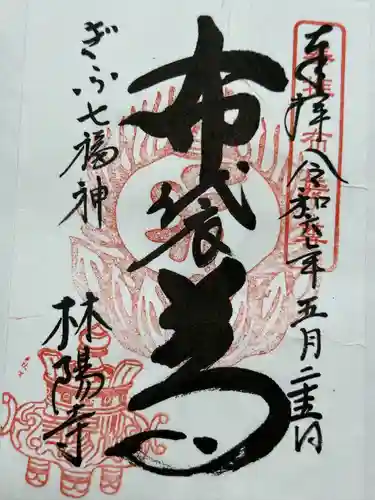 奉拝 令和七年五月二十五日
布袋尊
ぎふ七福神
林陽寺